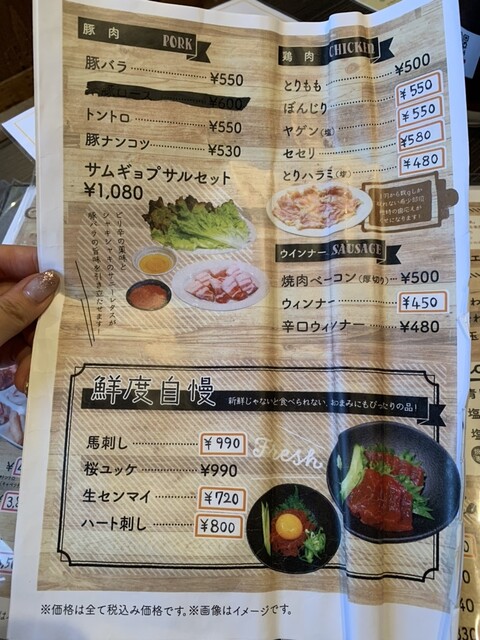 豚肉 PORK
豚バラ ¥550
¥600
トントロ ¥550
豚ナンコツ ¥530
サムギョプサルセット
¥1,080
ピリ辛の薬味と
シャキシャキのサニーレタスが
豚バラの旨味を引きたたせます
鶏肉 CHICKEN
とりもも ¥500
ぼんじり ¥550
ヤゲン(塩) ¥550
セセリ ¥580
とりハラミ(塩) ¥480
ウインナー SAUSAGE
焼肉ベーコン(厚切り) ¥500
ウィンナー ¥450
辛口ウィンナー ¥480
鮮度自慢
新鮮じゃないと食べられない、おつまみにもぴったりの品!
Fresh
馬刺し ¥990
桜ユッケ ¥990
生センマイ ¥720
ハート刺し ¥800
※価格は全て税込み価格です。※画像はイメージです。